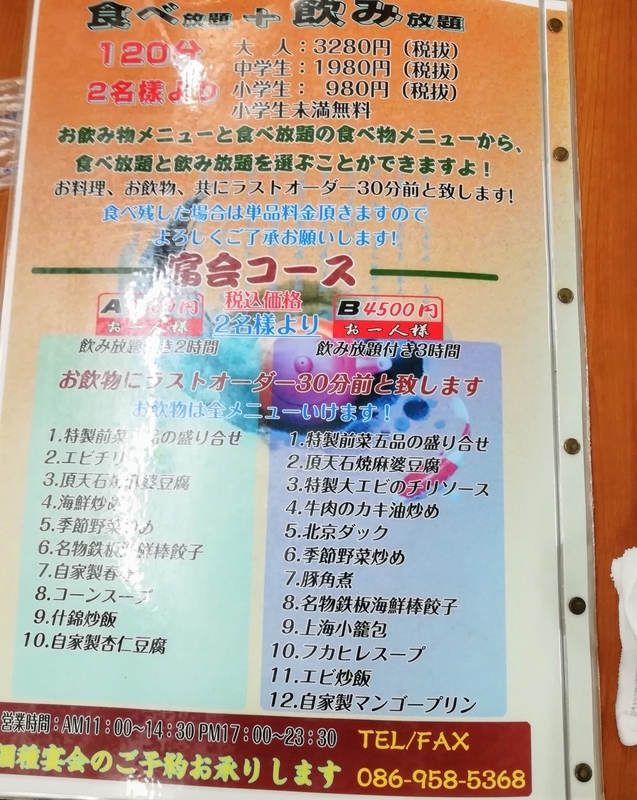 食べ放題＋飲み放題
120分
2名様より
大　人：3280円（税抜）
中学生：1980円（税抜）
小学生：　980円（税抜）
小学生未満無料
お飲み物メニューと食べ放題の食べ物メニューから、
食べ放題と飲み放題を選ぶことができますよ！
お料理、お飲物、共にラストオーダー30分前と致します!
食べ残した場合は単品料金頂きますので
よろしくご了承お願いします!
宴会コース
A
円
お一人様
飲み放題付き2時間
税込価格
2名様より
B 4500円
お一人様
飲み放題付き3時間
お飲物にラストオーダー30分前と致します
お飲物は全メニューいけます！
1.特製前菜五品の盛り合せ
2.エビチリ
3.頂天石焼麻婆豆腐
4.海鮮炒め
5.季節野菜炒め
6.名物鉄板海鮮棒餃子
7.自家製春
8.コーンスープ
9.什錦炒飯
10.自家製杏仁豆腐
1.特製前菜五品の盛り合せ
2.頂天石焼麻婆豆腐
3.特製大エビのチリソース
4.牛肉のカキ油炒め
5.北京ダック
6.季節野菜炒め
7.豚角煮
8.名物鉄板海鮮棒餃子
9.上海小籠包
10.フカヒレスープ
11.エビ炒飯
12.自家製マンゴープリン
営業時間：AM11：00~14：30 PM17：00~23：30
種宴会のご予約お承りします
TEL/FAX
086-958-5368